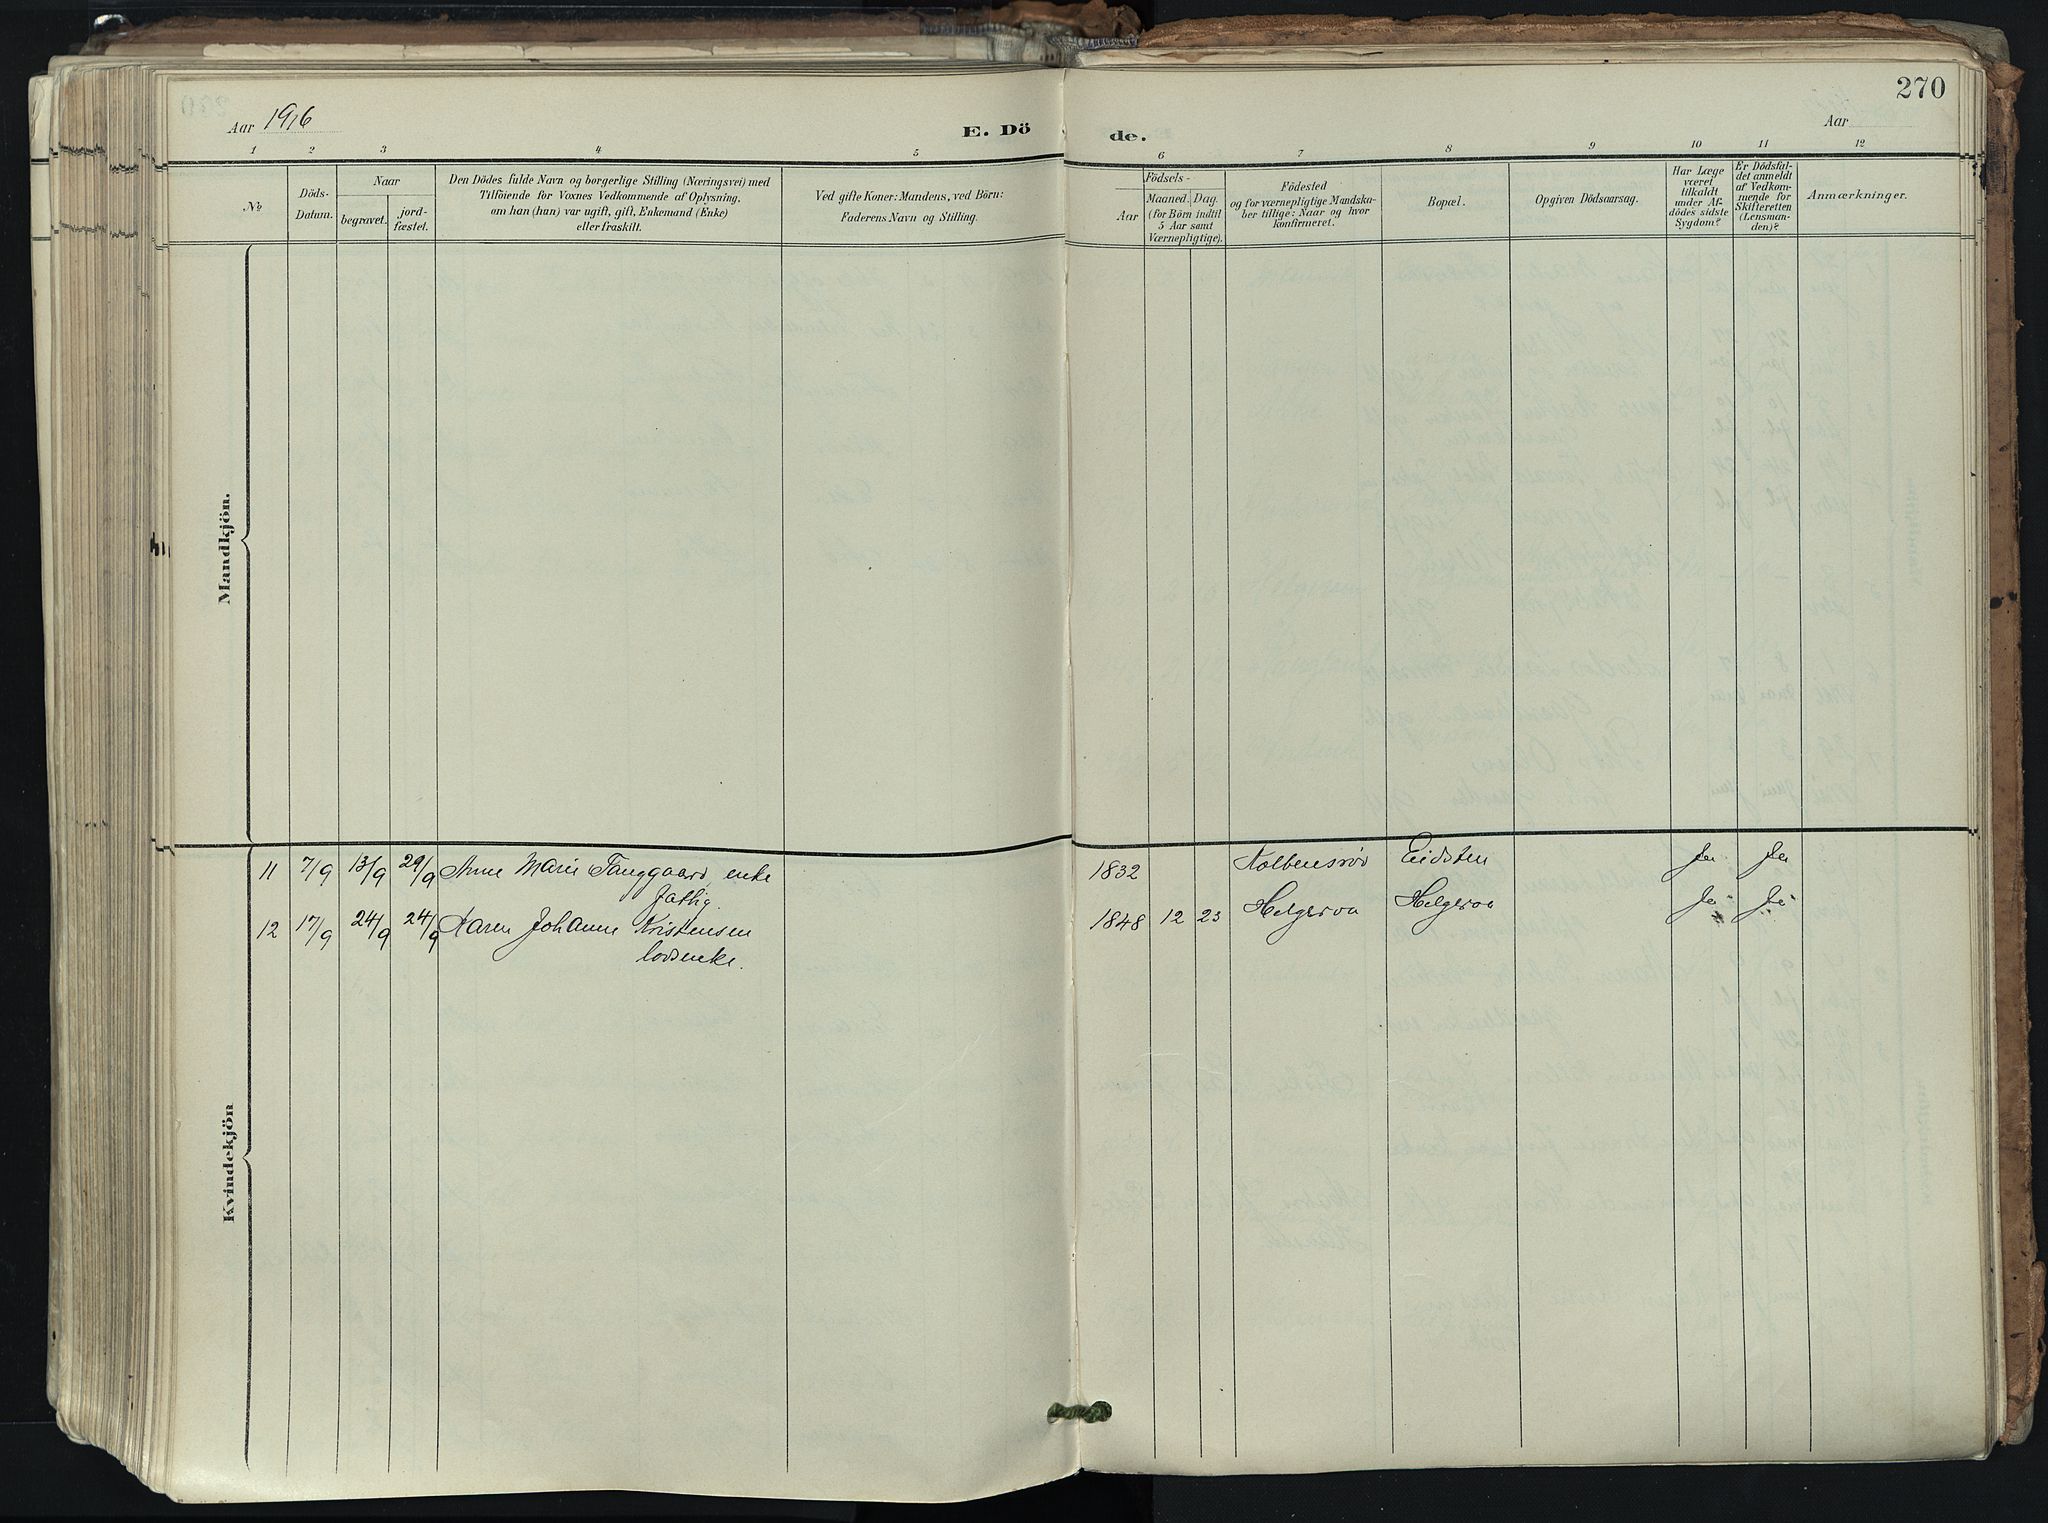 270
Aar 1916
E. Dö
de.
Aar
1 2 3 4 5 6 7 8 9 10 11 12
No.
Döds-
Datum.
Naar
begravet.
jord-
fæstet.
Den Dödes fulde Navn og borgerlige Stilling (Næringsvei) med
Tilföiende for Voxnes Vedkommende af Oplysning,
om han (hun) var ugift, gift, Enkemand (Enke)
eller fraskilt.
Ved gifte Koner: Mandens, ved Börn:
Faderens Navn og Stilling.
Födsels-
Aar
Maaned.
Dag.
(for Börn indtil
5 Aar samt
Værnepligtige).
Födested
og for værnepligtige Mandska-
ber tillige: Naar og hvor
konfirmeret.
Bopæl.
Opgiven Dödsaarsag.
Har Læge
været
tilkaldt
under Af-
dödes sidste
Sygdom?
Er Dödsfal-
det anmeldt
af Vedkom-
mende for
Skifteretten
(Lensman-
den)?
Anmærkninger.
Mandkjön.
11 7/9 13/9 29/9 Anne Marie Tanggaard enke 1832 Kolbensrød Eidsten Ja Ja
fattig.
12 17/9 24/9 24/9 Karen Johanne Kristensen 1848 12 23 Helgeroa Helgeroa Ja Ja
lodsenke.
Kvindekjön